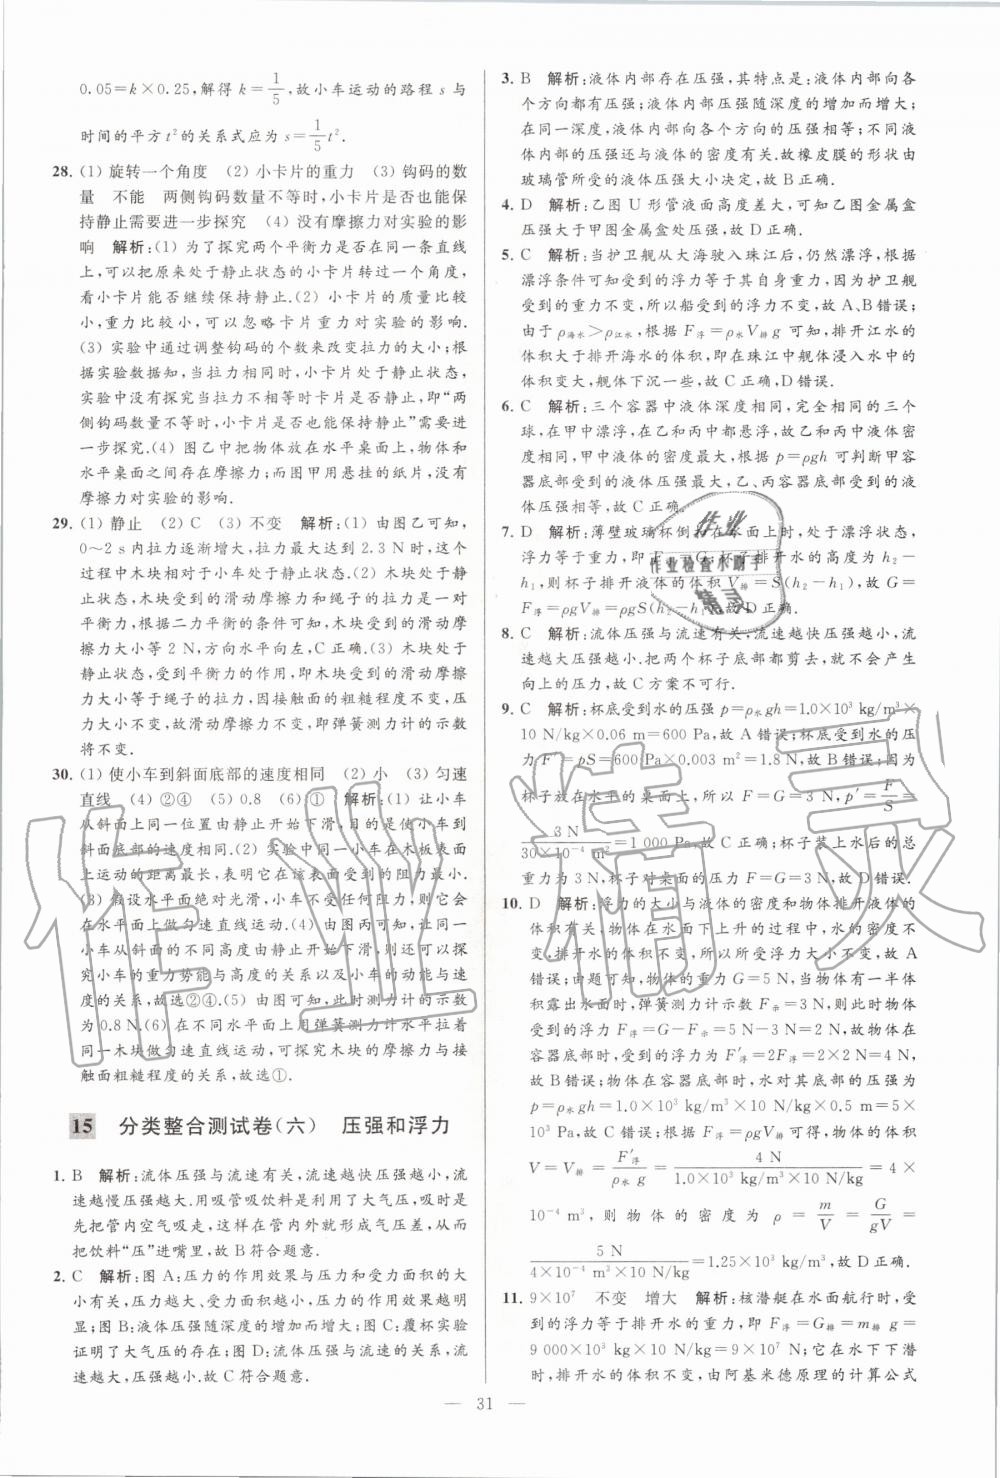 0.05=k×0.25,解得 k=1/5,故小车运动的路程 s 与
时间的平方 t²的关系式应为 s=1/5t².
28. (1) 旋转一个角度 (2) 小卡片的重力 (3) 钩码的数
量 不能 两侧钩码数量不等时,小卡片是否也能保
持静止需要进一步探究 (4) 没有摩擦力对实验的影
响 解析:(1) 为了探究两个平衡力是否在同一条直线
上,可以把原来处于静止状态的小卡片转过一个角度,
看小卡片能否继续保持静止.(2) 小卡片的质量比较
小,重力比较小,可以忽略卡片重力对实验的影响.
(3) 实验中通过调整钩码的个数来改变拉力的大小;根
据实验数据知,当拉力相同时,小卡片处于静止状态,
实验中没有探究当拉力不相等时卡片是否静止,即“两
侧钩码数量不等时,小卡片是否也能保持静止”需要进
一步探究.(4) 图乙中把物体放在水平桌面上,物体和
水平桌面之间存在摩擦力;而图甲用悬挂的纸片,没有
摩擦力对实验的影响.
29. (1) 静止 (2) C (3) 不变 解析:(1) 由图乙可知,
0～2 s 内拉力逐渐增大,拉力最大达到 2.3 N 时,这个
过程中木块相对于小车处于静止状态.(2) 木块在小车
上滑动时,木块受到的滑动摩擦力和绳子的拉力是一对
平衡力,根据二力平衡的条件可知,木块受到的滑动摩
擦力大小等于 2 N,方向水平向左,C正确.(3) 木块与
小车发生相对滑动时,受到平衡力的作用,木块受到摩
擦力大小等于绳子的拉力,因接触面的粗糙程度不变,压
力大小不变,故滑动摩擦力不变,即弹簧测力计的示数
将不变.
30. (1) 使小车到斜面底部的速度相同 (2) 小 (3) 匀速
直线 (4) ②④ (5) 0.8 (6) ① 解析:(1) 让小车
从斜面上同一位置由静止开始下滑,目的是使小车到
斜面底部的速度相同.(2) 实验中同一小车在木板表面
上运动的距离最长,表明它在该表面受到的阻力最小.
(3) 假设水平面绝对光滑,小车不受任何阻力,则它会
在水平面上做匀速直线运动.(4) 由题意知,让同一
小车从斜面的不同高度由静止开始下滑,则可以探究
小车的重力势能与高度的关系以及小车的动能与速度
的关系,故选②④.(5) 由图可知,此时测力计的示数
为 0.8 N.(6) 在不同水平面上用弹簧测力计水平拉着
同一木块做匀速直线运动,可探究木块的摩擦力与接
触面粗糙程度的关系,故选①.
15 分类整合测试卷(六) 压强和浮力
1. B 解析:流体压强与流速有关,流速越快压强越小,流
速越慢压强越大.用吸管吸饮料是利用了大气压,吸时是
先把管内空气吸走,这样在管内外就形成气压差,从而
把饮料“压”进嘴里,故 B 符合题意.
2. C 解析:图 A:压力的作用效果与压力和受力面积的大
小有关,压力越大、受力面积越小,压力的作用效果越明
显;图 B:液体压强与液体的深度有关;图 C:覆杯实验
证明了大气压的存在;图 D:流体压强与流速的关系.综
上所述,故 C 符合题意.
3. B 解析:液体内部存在压强,其特点是:液体内部向各
个方向都有压强;液体内部压强随深度的增加而增大;
在同一深度,液体内部向各个方向的压强相等;不同液
体内部的压强还与液体的密度有关.故橡皮膜的形状由
玻璃管所受的液体压强大小决定,故 B 正确.
4. D 解析:乙图 U 形管液面高度差大,可知乙图金属盒
处压强大于甲图金属盒处压强,故 D 正确.
5. C 解析:当护卫舰从大海驶入珠江后,仍然漂浮,根据
漂浮条件可知受到的浮力等于其自身重力,因为护卫舰
受到的重力不变,所以船受到的浮力不变,故 A、B 错误;
由于 ρ海水＞ρ江水,根据 F浮=ρ水V排g 可知,排开江水的
体积大于排开海水的体积,即在珠江中舰体浸入水中的
体积变大,舰体下沉一些,故 C 正确,D 错误.
6. C 解析:三个容器中液体深度相同,完全相同的三个
球,在甲中漂浮,在乙和丙中都悬浮,故乙和丙中液体密
度相同,甲中液体的密度最大,根据 p=ρgh 可判断甲容
器底部受到的液体压强最大,乙、丙容器底部受到的液
体压强相等,故 C 正确.
7. D 解析:薄壁玻璃杯倒扣在水面上时,处于漂浮状态,
浮力等于重力,即 F浮=G.杯子排开水的高度为 h₂-
h₁,则杯子排开液体的体积 V排=S(h₂-h₁),故 G=
F浮=ρgV排=ρgS(h₂-h₁),故 D 正确.
8. C 解析:流体压强与流速有关,流速越快压强越小,流
速越大压强越小.把两个杯子底部都剪去,就不会产生
向上的压力,故 C 方案不可行.
9. C 解析:杯底受到水的压强 p=ρ水gh=1.0×10³ kg/m³×
10 N/kg×0.06 m=600 Pa,故 A 错误;杯底受到水的压
力 F′=pS=600 Pa×0.003 m²=1.8 N,故 B 错误;因为
杯子放在水平的桌面上,所以 F=G=3 N,p′=F/S=
3 N/(30×10⁻⁴ m²)=1 000 Pa,故 C 正确;杯子装上水后的总
重力为 3 N,杯子对桌面的压力 F=G=3 N,故 D 错误.
10. D 解析:浮力的大小与液体的密度和物体排开液体的
体积有关.物体在水面下上升的过程中,水的密度不
变,排开水的体积不变,所受浮力大小不变,故 A
错误;由题可知,物体的重力 G=5 N,当物体有一半体
积露出水面时,弹簧测力计示数 F示=3 N,则此时物体
受到的浮力 F浮=G-F示=5 N-3 N=2 N,故物体在
容器底部时,受到的浮力为 F′浮=2F浮=2×2 N=4 N,
故 B 错误;物体在容器底部时,水对其底部的压强为
p=ρ水gh=1.0×10³ kg/m³×10 N/kg×0.5 m=5×
10³ Pa,故 C 错误;由 F浮=ρ水gV排可得,物体的体积
V=V排=F′浮/(ρ水g)=4 N/(1.0×10³ kg/m³×10 N/kg)=4×
10⁻⁴ m³,则物体的密度为 ρ=m/V=G/(gV)=
5 N/(4×10⁻⁴ m³×10 N/kg)=1.25×10³ kg/m³,故 D 正确.
11. 9×10⁷ 不变 增大 解析:核潜艇在水面航行时,受
到的浮力等于排开水的重力,即 F浮=G排=m排g=
9 000×10³ kg×10 N/kg=9×10⁷ N;它在水下下潜
时,排开水的体积不变,由阿基米德原理的计算公式
— 31 —